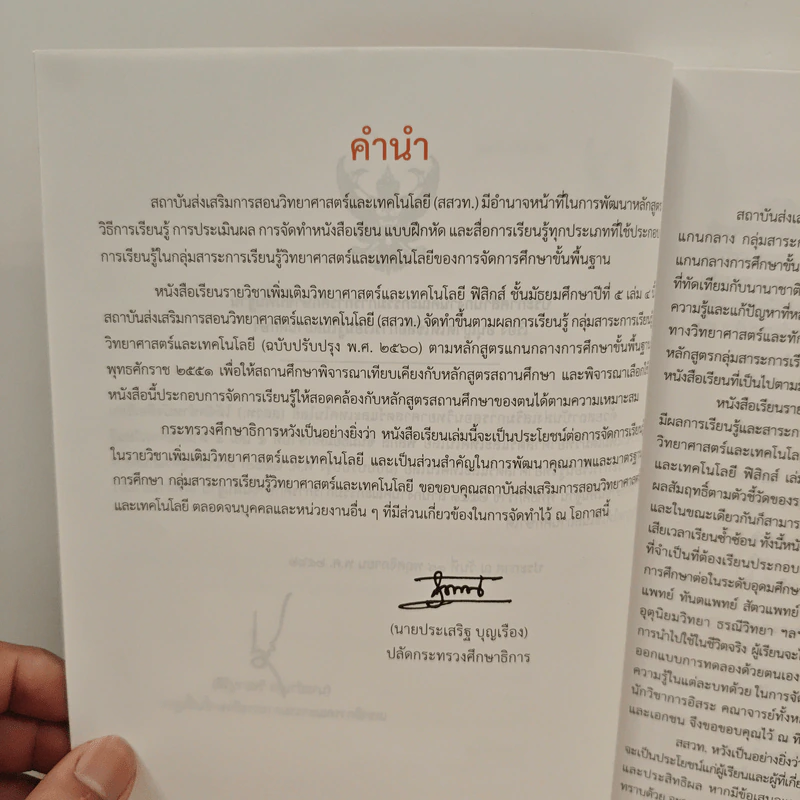 คำนำ
สถาบันส่งเสริมการสอนวิทยาศาสตร์และเทคโนโลยี (สสวท.) มีอำนาจหน้าที่ในการพัฒนาหลักสูตร
วิธีการเรียนรู้ การประเมินผล การจัดทำหนังสือเรียน แบบฝึกหัด และสื่อการเรียนรู้ทุกประเภทที่ใช้ประกอบ
การเรียนรู้ในกลุ่มสาระการเรียนรู้วิทยาศาสตร์และเทคโนโลยีของการจัดการศึกษาขั้นพื้นฐาน
หนังสือเรียนรายวิชาเพิ่มเติมวิทยาศาสตร์และเทคโนโลยี ฟิสิกส์ ชั้นมัธยมศึกษาปีที่ ๕ เล่ม ๔
สถาบันส่งเสริมการสอนวิทยาศาสตร์และเทคโนโลยี (สสวท.) จัดทำขึ้นตามผลการเรียนรู้ กลุ่มสาระการเรียนรู้
วิทยาศาสตร์และเทคโนโลยี (ฉบับปรับปรุง พ.ศ. ๒๕๖๐) ตามหลักสูตรแกนกลางการศึกษาขั้นพื้นฐาน
พุทธศักราช ๒๕๕๑ เพื่อให้สถานศึกษาพิจารณาเทียบเคียงกับหลักสูตรสถานศึกษา และพิจารณาเลือกใช้
หนังสือนี้ประกอบการจัดการเรียนรู้ให้สอดคล้องกับหลักสูตรสถานศึกษาของตนได้ตามความเหมาะสม
กระทรวงศึกษาธิการหวังเป็นอย่างยิ่งว่า หนังสือเรียนเล่มนี้จะเป็นประโยชน์ต่อการจัดการเรียนรู้
ในรายวิชาเพิ่มเติมวิทยาศาสตร์และเทคโนโลยี และเป็นส่วนสำคัญในการพัฒนาคุณภาพและมาตรฐาน
การศึกษา กลุ่มสาระการเรียนรู้วิทยาศาสตร์และเทคโนโลยี ขอขอบคุณสถาบันส่งเสริมการสอนวิทยาศาสตร์
และเทคโนโลยี ตลอดจนบุคคลและหน่วยงานอื่น ๆ ที่มีส่วนเกี่ยวข้องในการจัดทำไว้ ณ โอกาสนี้
(นายประเสริฐ บุญเรือง)
ปลัดกระทรวงศึกษาธิการ
สถาบันส่งเส
แกนกลาง กลุ่มสาระกา
แกนกลางการศึกษาขั้น
ที่ทัดเทียมกับนานาชาติ
ความรู้และแก้ปัญหาที่ห
ทางวิทยาศาสตร์และทัก
หลักสูตรกลุ่มสาระการเรี
หนังสือเรียนที่เป็นไปตาม
หนังสือเรียนราย
มีผลการเรียนรู้และสาระกา
วิทยาศาสตร์และเทคโนโล
และเทคโนโลยี ฟิสิกส์ เล่
ผลสัมฤทธิ์ตามตัวชี้วัดของร
และในขณะเดียวกันก็สามาร
เสียเวลาเรียนซ้ำซ้อน ทั้งนี้หนั
ที่จำเป็นที่ต้องเรียนประกอบ
การศึกษาต่อในระดับอุดมศึกษ
แพทย์ ทันตแพทย์ สัตวแพทย์
อุตุนิยมวิทยา ธรณีวิทยา ฯลฯ
การนำไปใช้ในชีวิตจริง ผู้เรียนจะไ
ออกแบบการทดลองด้วยตนเอง
ความรู้ในแต่ละบทด้วย ในการจัด
นักวิชาการอิสระ คณาจารย์ทั้งห
และเอกชน จึงขอขอบคุณไว้ ณ ที่
สสวท. หวังเป็นอย่างยิ่งว่
จะเป็นประโยชน์แก่ผู้เรียนและผู้ที่เกี่
และประสิทธิผล หากมีข้อเสนอ
ทราบด้วย